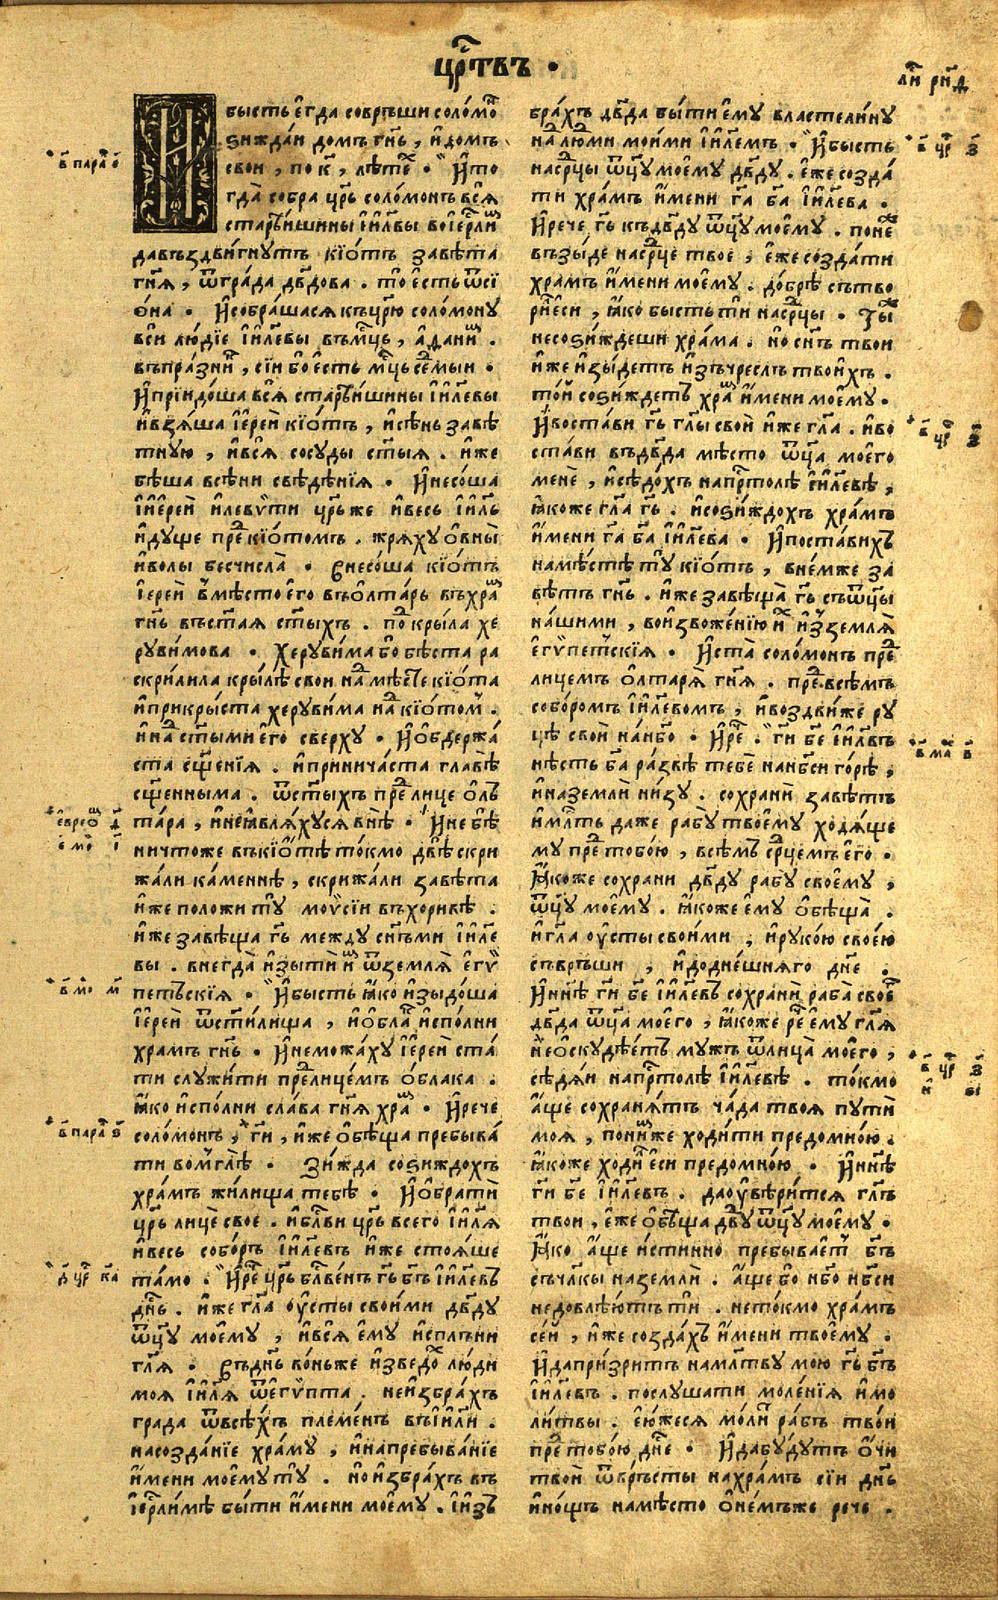 црⷭ҇твъ ·
И
бысть є҆гда соврⸯши соломо́
ѕижда́и домъ гн҃ь, и҆ домъ
свои, по к҃, лѣтеⷯ · И҆ то
гда̀ собра цр҃ь соло́монъ всѧ̀
старѣ́ишины і҆и҃лвы во і҆ерⷭ҇ли́м
да въздви́гнутъ кїо́тъ завѣ́та
гн҃ѧ, ѿ гра́да дв҃дова. то є҆сть ѿ сї
о́на · И҆ собра́шасѧ къ цр҃ю соло́мону
вси лю́дїе і҆и҃левы въ мцⷭ҇ъ, а҆дани́м.
въ пра́зниⷦ, сїи бо є҆сть мцⷭ҇ь се́мыи ·
И҆ прїидо́ша всѧ̀ старѣ́ишины і҆и҃левы
и҆ взѧ́ша і҆ере́и кїо́тъ, и҆ сѣ́нь завѣ́
тную, и҆ всѧ̀ сосу́ды ст҃ыѧ. и҆же
бѣ́ша в сѣ́ни свѣдѣ́нїѧ · И҆ несо́ша
і҆ и҆ере́и и҆ левѵ́ти цр҃ь же и҆ весь і҆и҃ль
и҆ду́ще преⷣ кїо́томъ. жрѧ́ху о҆вны̀
и҆ волы̀ бесчисла̀ · Внесо́ша кїо́тъ
і҆ере́и в мѣ́сто є҆го въ о҆лта́рь въ храⷨ
гн҃ь въ ст҃аѧ ст҃ыхъ. поⷣ кры́ла хе
руви́мова · Херуви́ма бо бѣ́ста ра
скрилила кры́лѣ свои наⷣ мѣ́сте кїо́та
и҆ прикры́ста херуви́ма наⷣ кїо́томъ.
и҆ наⷣ ст҃ыми є҆го сверху · И҆ о҆бдержа́
ста сщ҃енїѧ. и҆ принича́ста главѣ̀
сщ҃енныма. ѿ ст҃ыхъ преⷣ лице о҆лъ
тара, и҆ не ꙗ҆влѧ́хусѧ внѣ̀ · И҆ не бѣ̀
ничтоже въ кїо́тѣ то́кмо двѣ̀ скри
жа́ли ка́меннѣ, скрижа́ли завѣ́та
и҆же положи тꙋ̀ моѵ̈си́и въ хори́вѣ.
и҆же завѣща гⷭ҇ь между сн҃ъми і҆и҃ле
вы. внегда̀ и҆зыти и҆м ѿ землѧ̀ є҆гѵ̈
петъскїѧ · И҆ бысть ꙗ҆́ко и҆зыдо́ша
і҆ере́и ѿ ст҃и́лища, и҆ о҆блаⷦ҇ и҆спо́лни
храмъ гн҃ь · И҆ не можа́ху і҆ере́и ста́
ти служи́ти преⷣ лице́мъ о҆́блака.
ꙗ҆́ко и҆спо́лни сла́ва гн҃ѧ храⷨ · И҆ рече
соло́монъ, гⷭ҇и, и҆же о҆бѣща пребыва́
ти во мглѣ̀ · Зи́жда соѕиждохъ
храмъ жи́лища тебѣ̀ · И҆ о҆братѝ
цр҃ь лицѐ свое. и҆ бл҃ви цр҃ь всего і҆и҃лѧ
и҆ весь собо́ръ і҆и҃левъ и҆же стоѧ́ше
та́мо. И҆ реⷱ҇ цр҃ь бл҃ве́нъ гⷭ҇ь бг҃ъ і҆и҃левъ
дн҃ь. и҆же гл҃а ᲂу҆сты свои́ми дв҃ду
ѿц҃у мое́му, и҆ всѧ̀ є҆му и҆сплъни
гл҃ѧ · Въ дн҃ь во́ньже и҆зведо́х лю́ди
моѧ і҆и҃лѧ ѿ є҆гѵ́пта. не и҆збра́хъ
града ѿ всѣ́хъ племе́нъ въ і҆и҃ли.
на созда́нїе хра́му, и҆ на пребыва́нїе
и҆мени мое́му тꙋ̀. но и҆збра́хъ въ
і҆ерⷭ҇ли́мѣ бы́ти и҆́мени мое́му. і҆ и҆зъ
бра́хъ дв҃да бы́ти є҆му властели́ну
на люⷣми мои́ми і҆и҃лемъ · И҆ бысть
на срⷣцы ѿц҃у мое́му дв҃ду. є҆же созда́
ти храмъ и҆мени гⷭ҇а бг҃а і҆и҃лева.
И҆ рече гⷭ҇ь къ дв҃ду ѿц҃у мое́му. поне́ж
възы́де на срⷣце твое, є҆же созда́ти
храмъ и҆мени мое́му. до́брѣ сътво
ри́л є҆си, ꙗ҆́ко бысть ти на срⷣцы · Ты́ж
не соѕи́ждеши хра́ма. но сн҃ъ твои
и҆же и҆зы́детъ и҆зъ чреслъ твои́хъ.
то́и соѕи́ждетъ храⷨ и҆́мени мое́му ·
И҆ воста́ви гⷭ҇ь гл҃ъ свои и҆же гл҃а. и҆ во
ста́ви въ дв҃да мѣ́сто ѿц҃а моего
менѐ, и҆ сѣдо́хъ на прⷭ҇то́лѣ і҆и҃левѣ,
ꙗ҆́коже гл҃а гⷭ҇ь. и҆ соѕи́ждохъ храмъ
и҆́мени гⷭ҇а бг҃а і҆и҃лева · И҆ поста́вихъ
на мѣ́стѣ тꙋ̀ кїо́тъ, в не́мже за
вѣ́тъ гн҃ь. и҆же завѣща̀ гⷭ҇ь съ ѿц҃ы
на́шими, во и҆звоже́нїю и҆́х и҆з землѧ̀
є҆гѵ́петскїѧ · И҆ ста̀ соло́монъ преⷣ
лицемъ о҆лтарѧ̀ гн҃ѧ. преⷣ всѣмъ
собо́ромъ і҆и҃левомъ, и҆ воздви́же ру
цѣ свои на нб҃о · И҆ реⷱ҇. гⷭ҇и бж҃е і҆и҃левъ
нѣсть бг҃а ра́звѣ тебѐ на нб҃си го́рѣ,
и҆ на землѝ ни́зу. сохранѝ завѣ́тъ
и҆ мл҃ть даже рабу̀ твоему ходѧще
му преⷣ тобо́ю, всѣ́мъ срⷣцемъ є҆го ·
Ꙗ҆́коже сохрани дв҃ду рабу̀ своему,
ѿц҃у моему. ꙗ҆́коже є҆му о҆бѣща̀.
и҆ гл҃а ᲂу҆сты свои́ми, и҆ руко́ю свое́ю
съврⸯши, и҆ до дне́шнѧго дн҃е.
И҆ нн҃ѣ гⷭ҇и бж҃е і҆и҃левъ сохранѝ раба̀ свое⁠г
дв҃да ѿц҃а мое́го, ꙗ҆́коже реⷱ҇ є҆му гл҃ѧ
не о҆скудѣ́етъ мужъ ѿ лица̀ мое́го,
сѣдѧ́и на прⷭ҇то́лѣ і҆и҃левѣ. то́кмо
а҆́ще сохранѧ́тъ ча́да твоѧ путѝ
моѧ, пони́мже ходи́ти предо мно́ю.
ꙗ҆́коже ходи́л є҆си предо мно́ю · И҆ нн҃ѣ
гⷭ҇и бж҃е і҆и҃левъ. да ᲂу҆вѣ́ритсѧ гл҃ъ
твои, є҆же о҆бѣща дв҃ду ѿц҃у мое́му ·
Ꙗ҆́ко а҆́ще и҆́стинно пребыва́етъ бг҃ъ
съ чл҃кы на землѝ. а҆́ще бо нб҃о и҆ нб҃си
недовлѣ́ютъ ти. не то́кмо храмъ
се́й, и҆́же созда́хъ и҆́мени твое́му.
и҆ да при́зритъ на мл҃тву мою гⷭ҇ь бг҃ъ
і҆и҃левъ. послу́шати моле́нїѧ и҆ мо
ли́твы. є҆́ю́жесѧ мо́лит ра́бъ тво́и
преⷣ тобо́ю дн҃е · И҆ да бу́дутъ о҆́чи
твои̂ ѿвръ́сты на храмъ сїи дн҃ь
и҆ но́щъ на мѣсто о҆ не́мъже рече.
ли́ⷭ р҃н҃д
в҃ пара е҃
є҆вреѡⷨ д҃
є҃ мо і҃
в҃ мо м҃
в҃ пара ѕ҃
д҃ цр҃ к҃а
в҃ цр҃ з҃
в҃ цр҃ з҃
в҃ маⷦ в҃
в҃ цр҃ з҃
и҆ в҃і